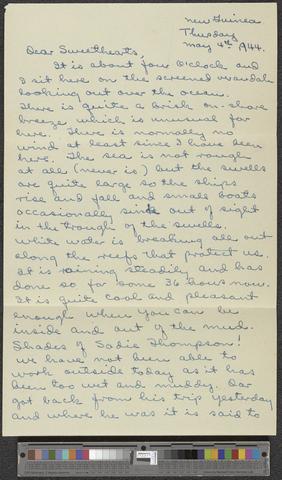 New Guinea
Thursday
May 4th 1944.
Dear Sweethearts,
It is about four o'clock and
I sit here on the screened verandah
looking out over the ocean.
There is quite a brisk on-shore
breeze which is unusual for
here. There is normally no
wind at least since I have been
here. The sea is not rough
at all (never is) but the swells
are quite large so the ships
rise and fall and small boats
occasionally sink out of sight
in the trough of the swells.
White water is breaking all out
along the reefs that protect us.
It is raining steadily and has
done so for some 36 hours now.
It is quite cool and pleasant
enough when you can be
inside and out of the mud.
Shades of Sadie Thompson!
We have not been able to
work outside today as it has
been too wet and muddy. Dar
got back from his trip yesterday
and where he was it is said to